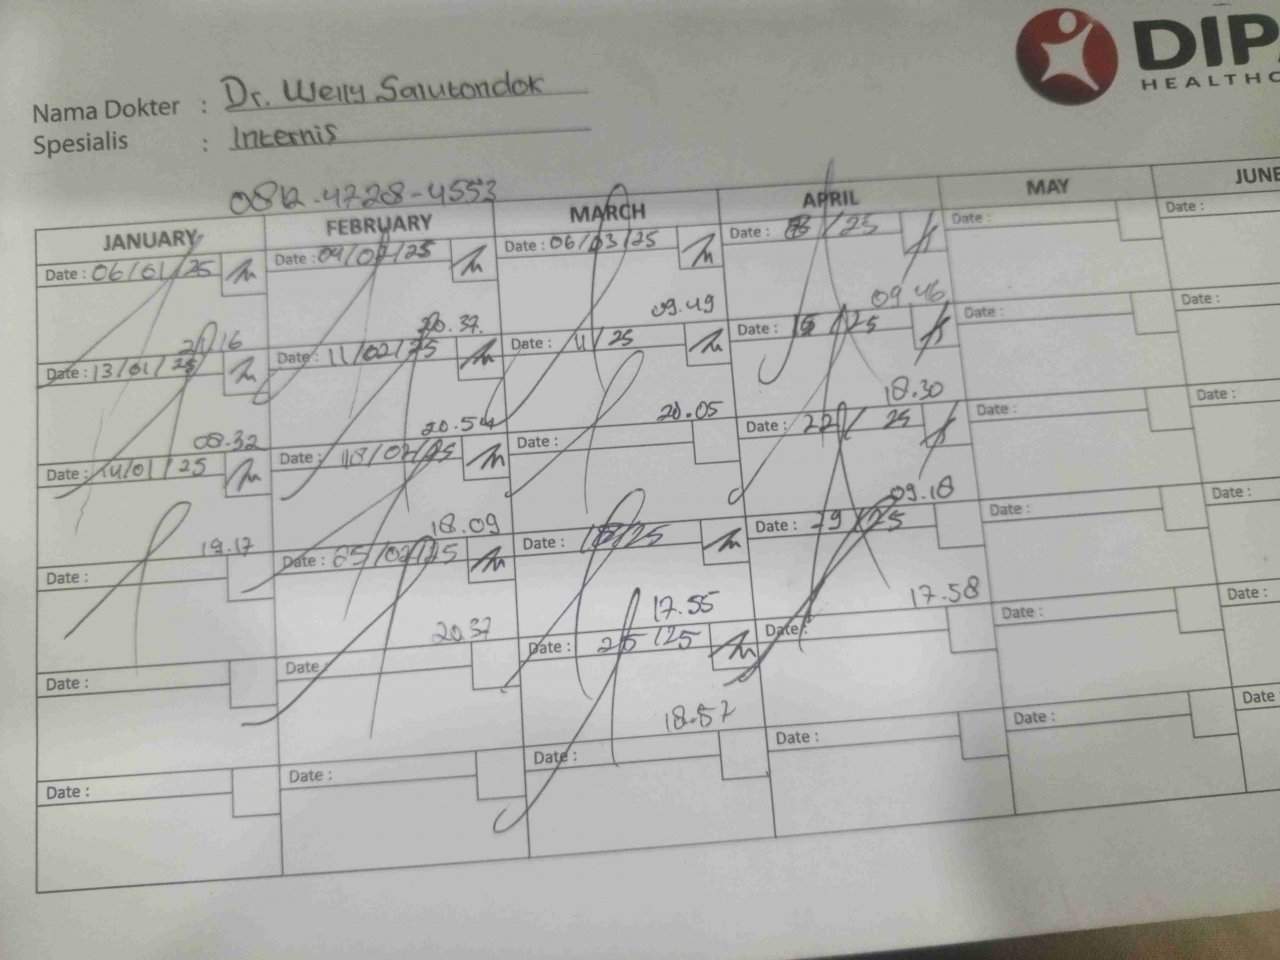 DIP
HEALTHC
Nama Dokter : Dr. Welly Salutondok
Spesialis : Internis
0812-4728-4553
JANUARY FEBRUARY MARCH APRIL MAY JUNE
Date : 06/01/25 Date : 04/02/25 Date : 06/03/25 Date : 8/25 Date : Date :
21.16 20.37 09.49 09.46
Date : 13/01/25 Date : 11/02/25 Date : 11/25 Date : 15/25 Date : Date :
08.32 20.54 20.05 18.30
Date : 14/01/25 Date : 18/02/25 Date : Date : 22/25 Date : Date :
19.17 18.09 09.18
Date : Date : 25/02/25 Date : 18/25 Date : 29/25 Date : Date :
20.37 17.55 17.58
Date : Date : Date : 25/25 Date : Date : Date :
18.57
Date : Date : Date : Date : Date : Date :